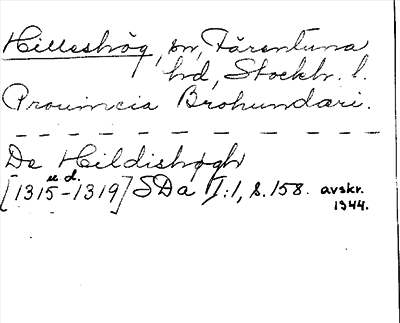 Hilleshög, sn, Färentuna
hd, Stockh. l.
Prouincia Brohundari.
De Hildishøgh
u d.
[1315-1319] SDa I:1, s. 158. avskr.
1344.